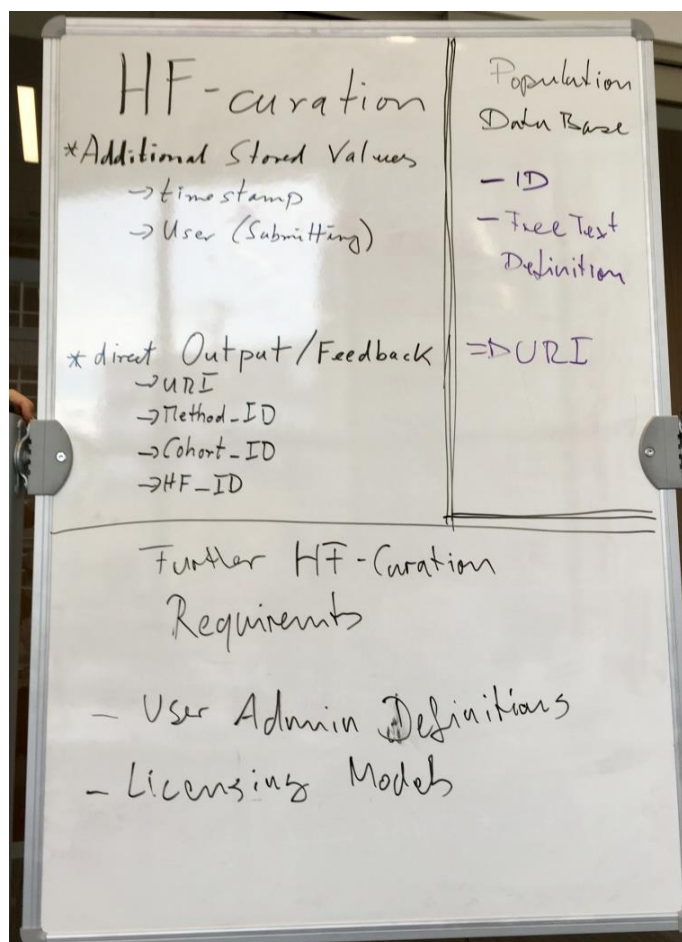 HF-curation
*Additional Stored Values
→timestamp
→User (Submitting)
*direct Output/Feedback
→URI
→Method_ID
→Cohort_ID
→HF_ID
Population
Data Base
- ID
- Free Text
Definition
=> URI
Further HF-Curation
Requiremts
- User Admin Definitions
- Licensing Models